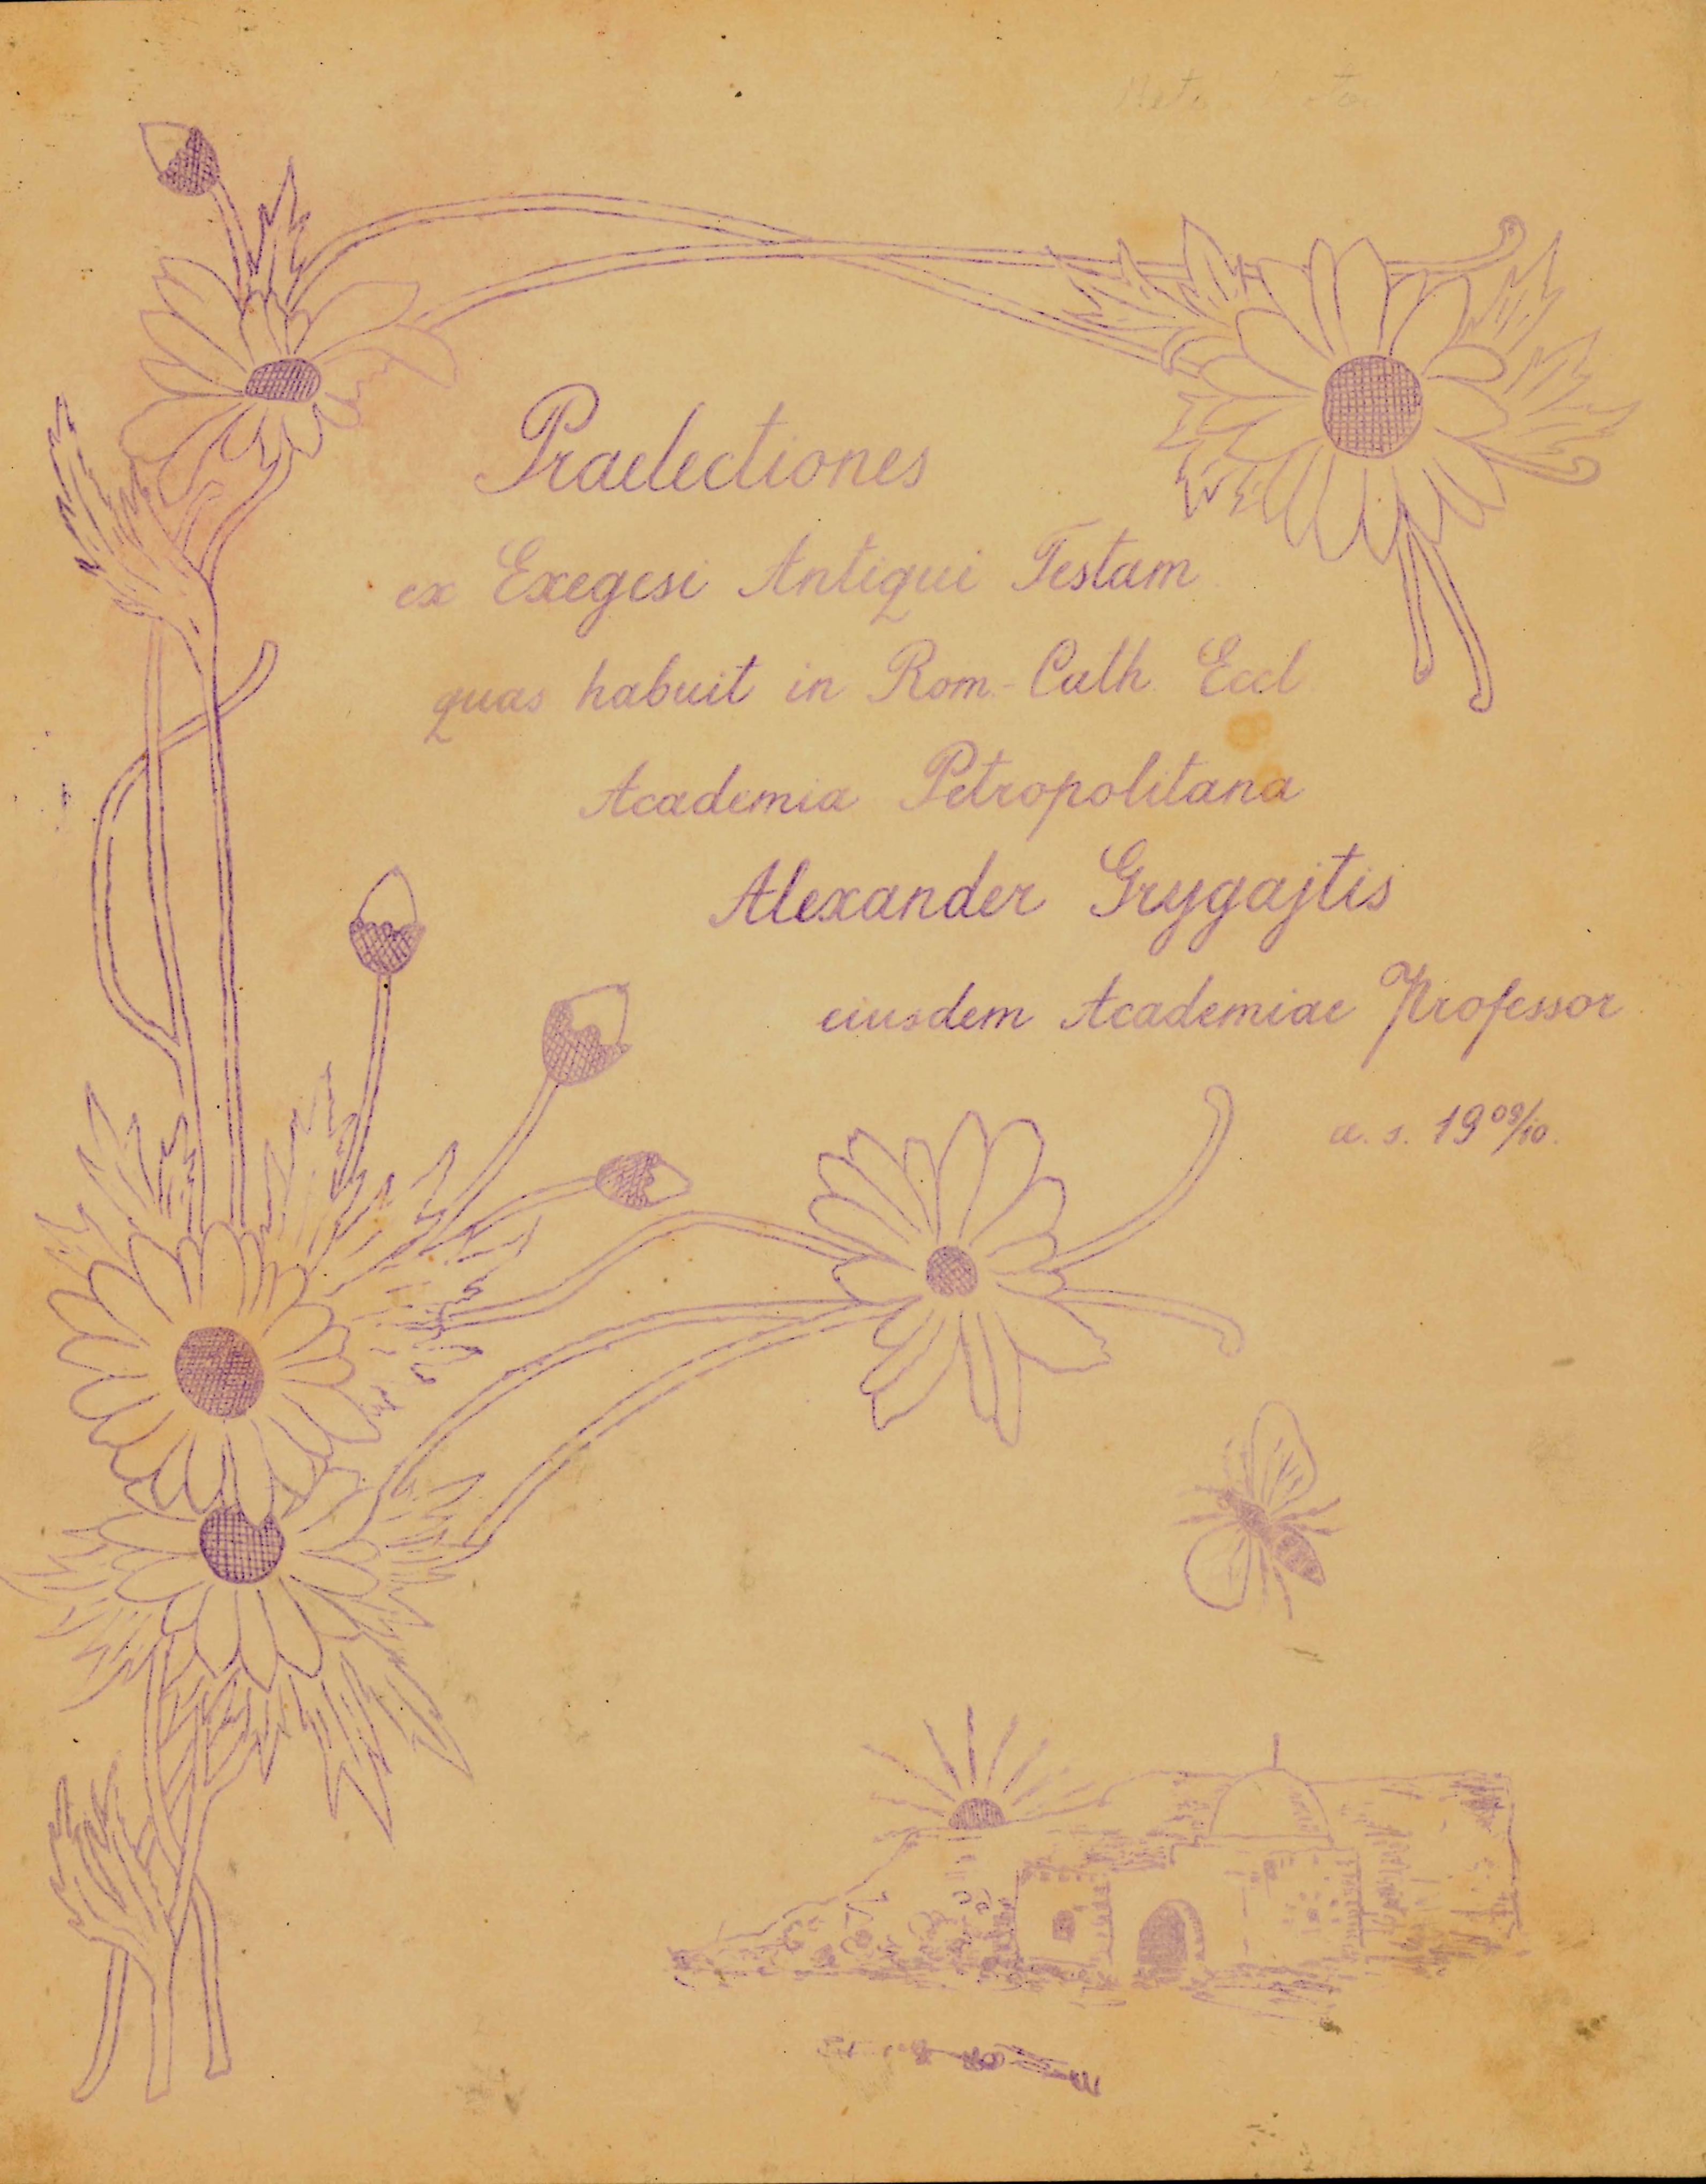 Praelectiones
ex Exegesi Antiqui Testam
quas habuit in Rom-Cath Eccl
Academia Petropolitana
Alexander Grygajtis
eiusdem Academiae Professor
a. s. 1909/10.